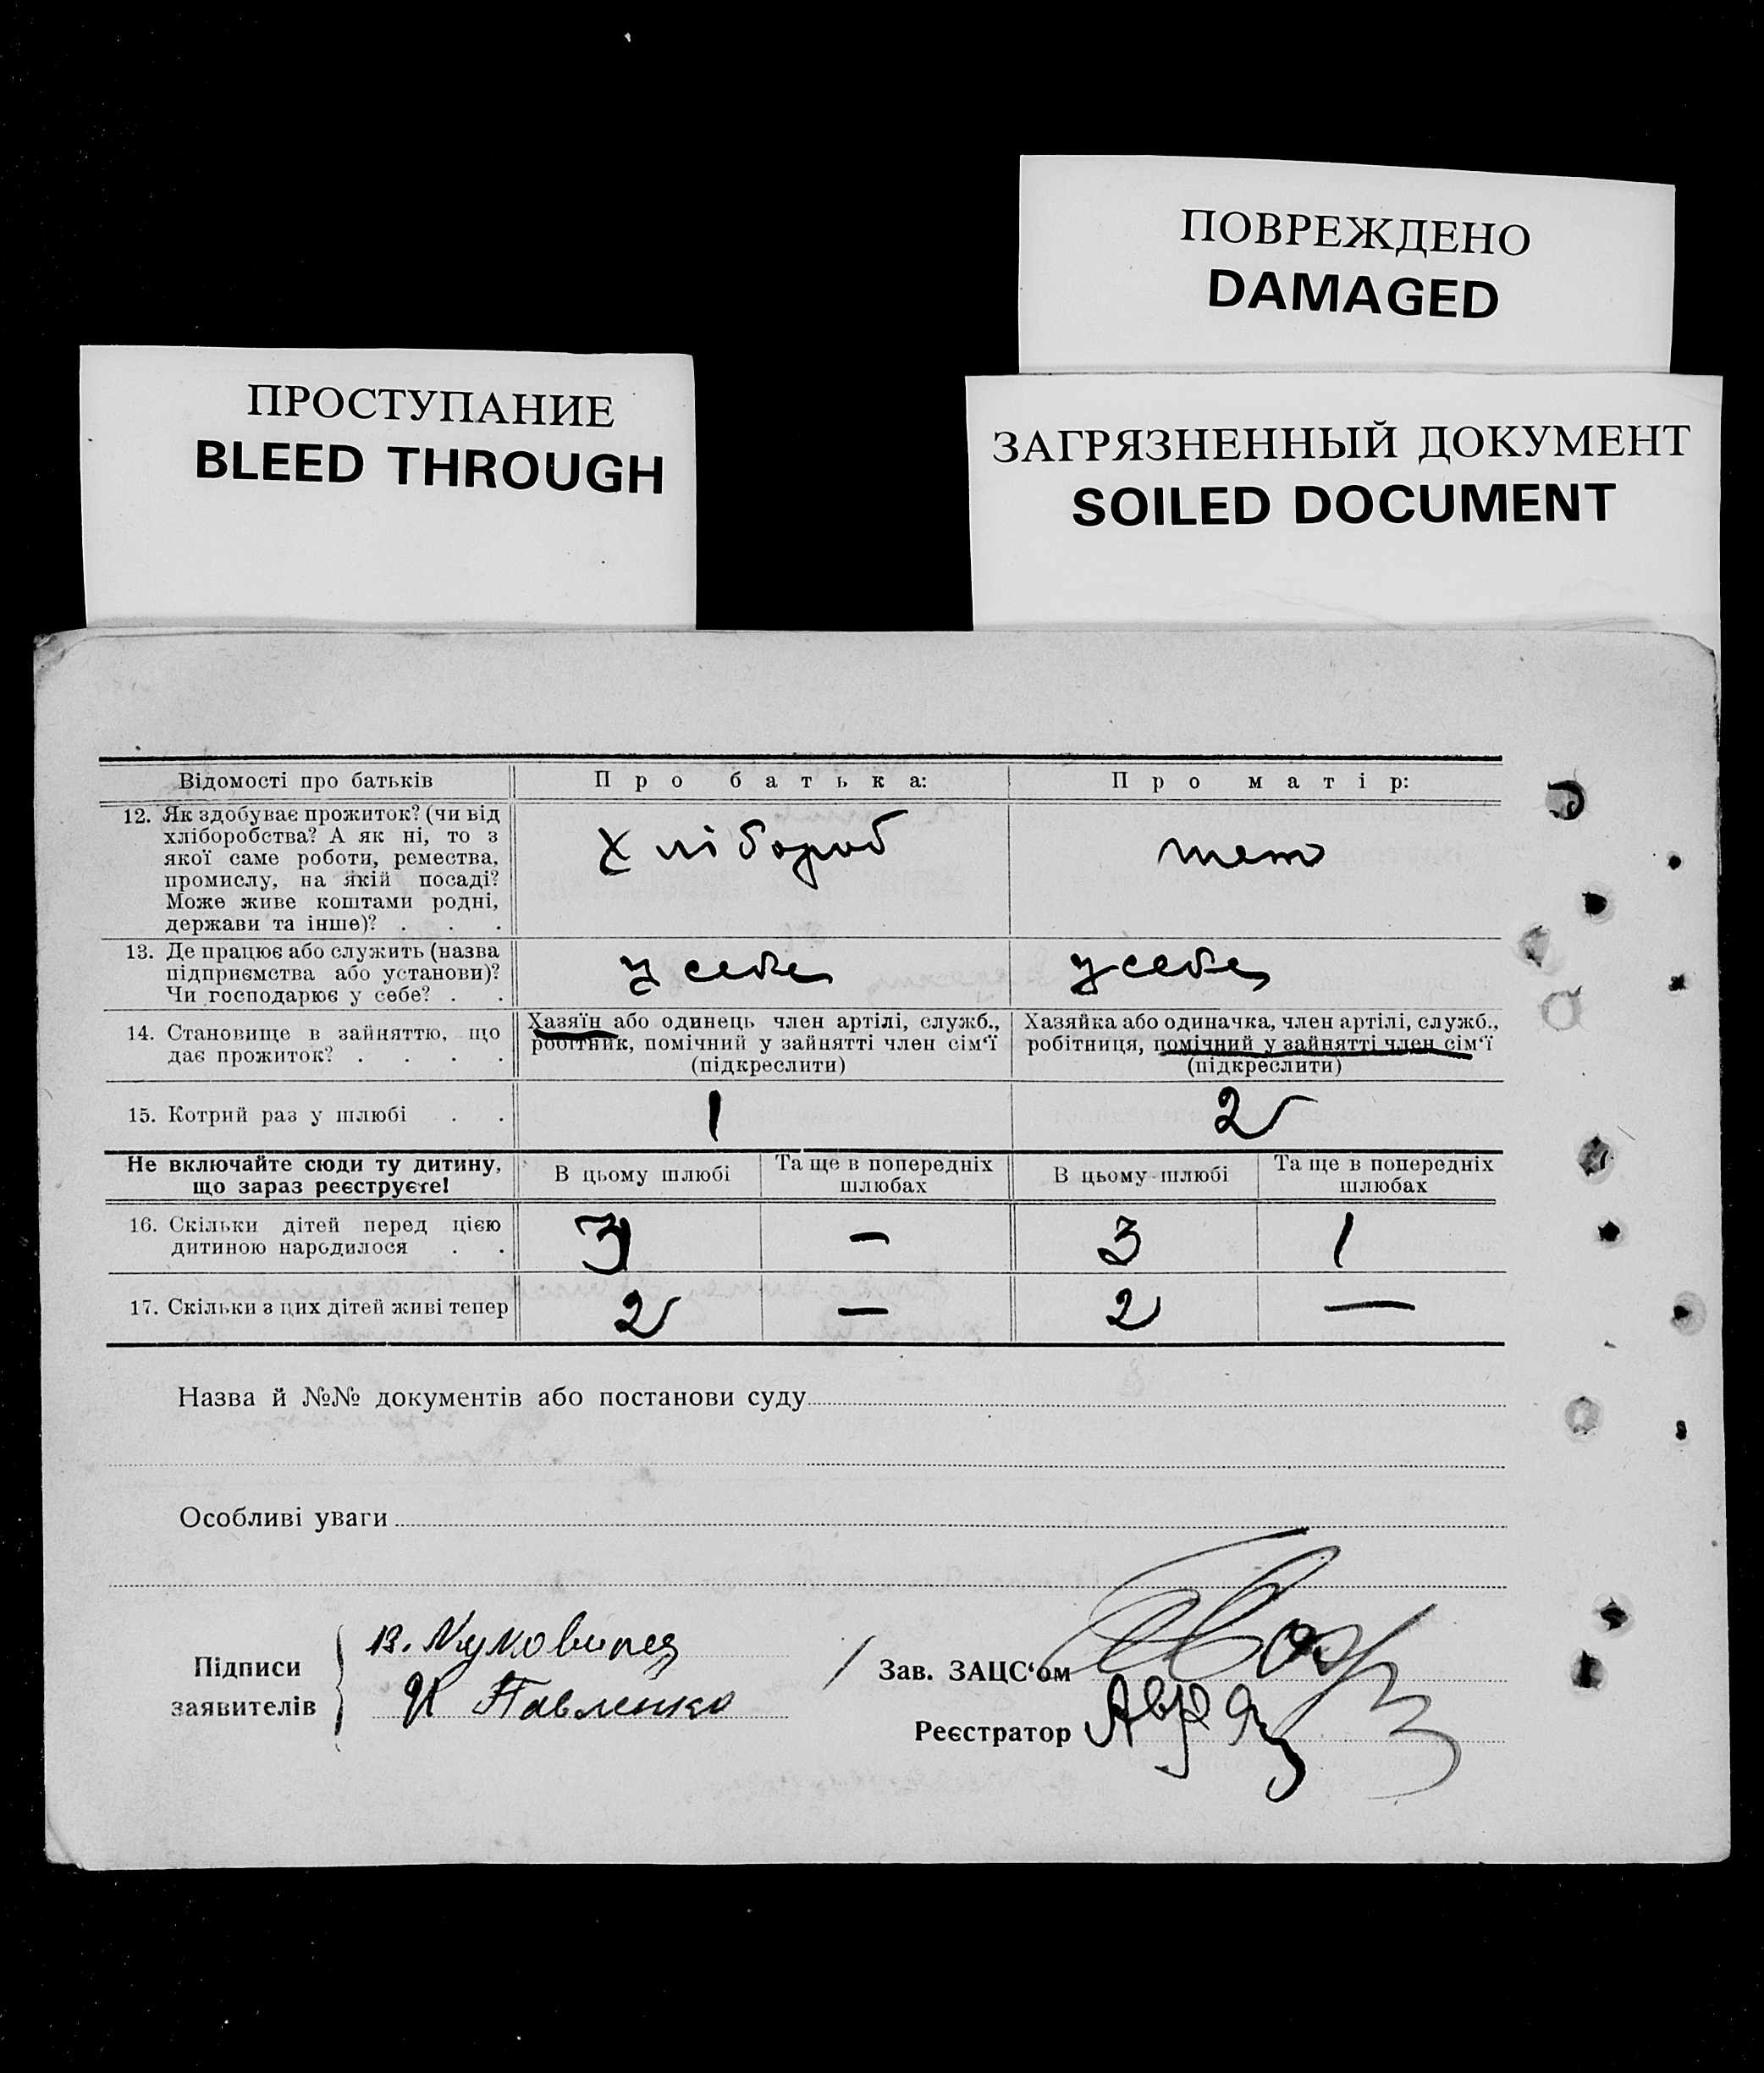 ПОВРЕЖДЕНО
DAMAGED
ПРОСТУПАНИЕ
BLEED THROUGH
ЗАГРЯЗНЕННЫЙ ДОКУМЕНТ
SOILED DOCUMENT
Відомості про батьків Про батька: Про матір:
12. Як здобуває прожиток? (чи від
хліборобства? А як ні, то з
якої саме роботи, ремества,
промислу, на якій посаді?
Може живе коштами родні,
держави та інше)? . . .
Хлібороб
тет
13. Де працює або служить (назва
підприємства або установи)?
Чи господарює у себе? . .
у себе
у себе
14. Становище в зайняттю, що
дає прожиток? . . . .
Хазяїн або одинець член артілі, служб.,
робітник, помічний у зайнятті член сім‘ї
(підкреслити)
Хазяйка або одиначка, член артілі, служб.,
робітниця, помічний у зайнятті член сім‘ї
(підкреслити)
15. Котрий раз у шлюбі . . 1 2
Не включайте сюди ту дитину,
що зараз реєструєте!
В цьому шлюбі
Та ще в попередніх
шлюбах
В цьому шлюбі
Та ще в попередніх
шлюбах
16. Скільки дітей перед цією
дитиною народилося . .
3 — 3 1
17. Скільки з цих дітей живі тепер 2 — 2 —
Назва й №№ документів або постанови суду
Особливі уваги
Підписи
заявителів
В.
И Павленко
Зав. ЗАЦС‘ом
Реєстратор